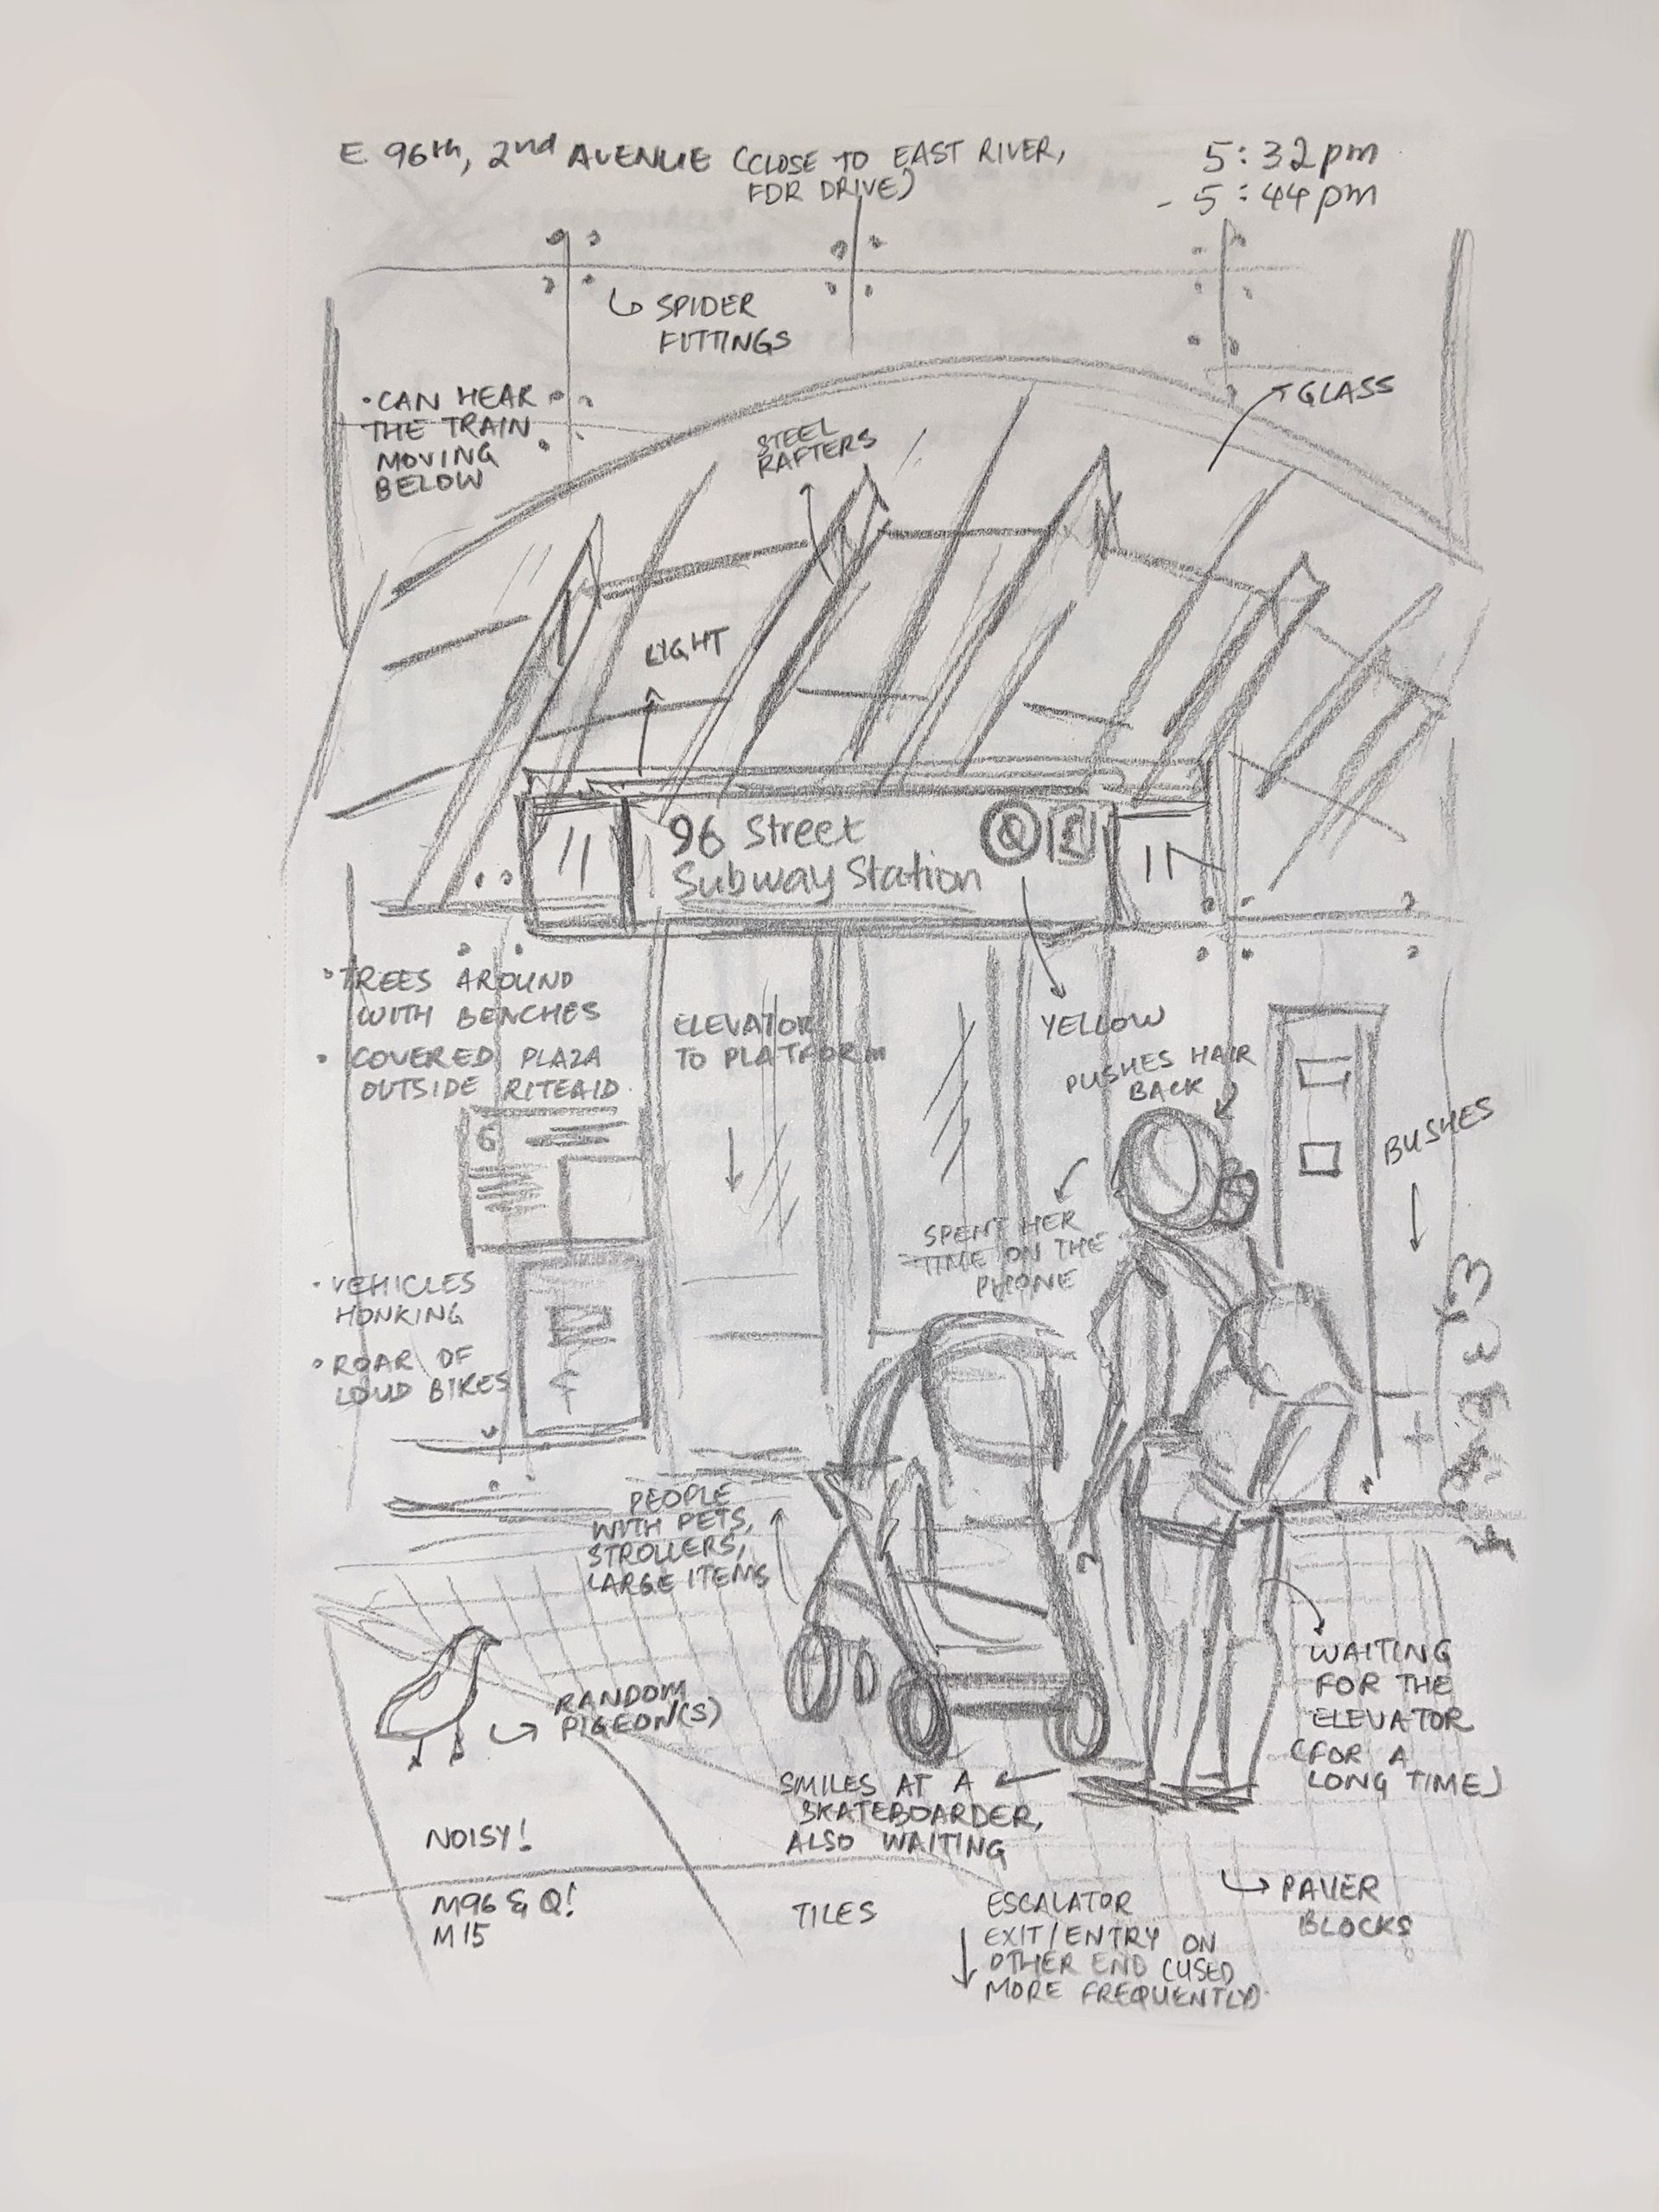 E 96th, 2nd AVENUE (CLOSE TO EAST RIVER,
FDR DRIVE)
5:32pm
- 5:44pm
SPIDER
FITTINGS
• CAN HEAR
THE TRAIN
MOVING
BELOW
STEEL
RAFTERS
GLASS
LIGHT
96 Street
Subway Station
Q
• TREES AROUND
WITH BENCHES
• COVERED PLAZA
OUTSIDE RITEAID
ELEVATOR
TO PLATFORM
YELLOW
PUSHES HAIR
BACK
BUSHES
G
SPENT HER
TIME ON THE
PHONE
• VEHICLES
HONKING
• ROAR OF
LOUD BIKES
PEOPLE
WITH PETS,
STROLLERS,
LARGE ITEMS
RANDOM
PIGEON(S)
WAITING
FOR THE
ELEVATOR
(FOR A
LONG TIME)
SMILES AT A
SKATEBOARDER,
ALSO WAITING
NOISY!
M96 & Q!
M15
TILES
ESCALATOR
EXIT/ENTRY ON
OTHER END (USED
MORE FREQUENTLY)
PAVER
BLOCKS